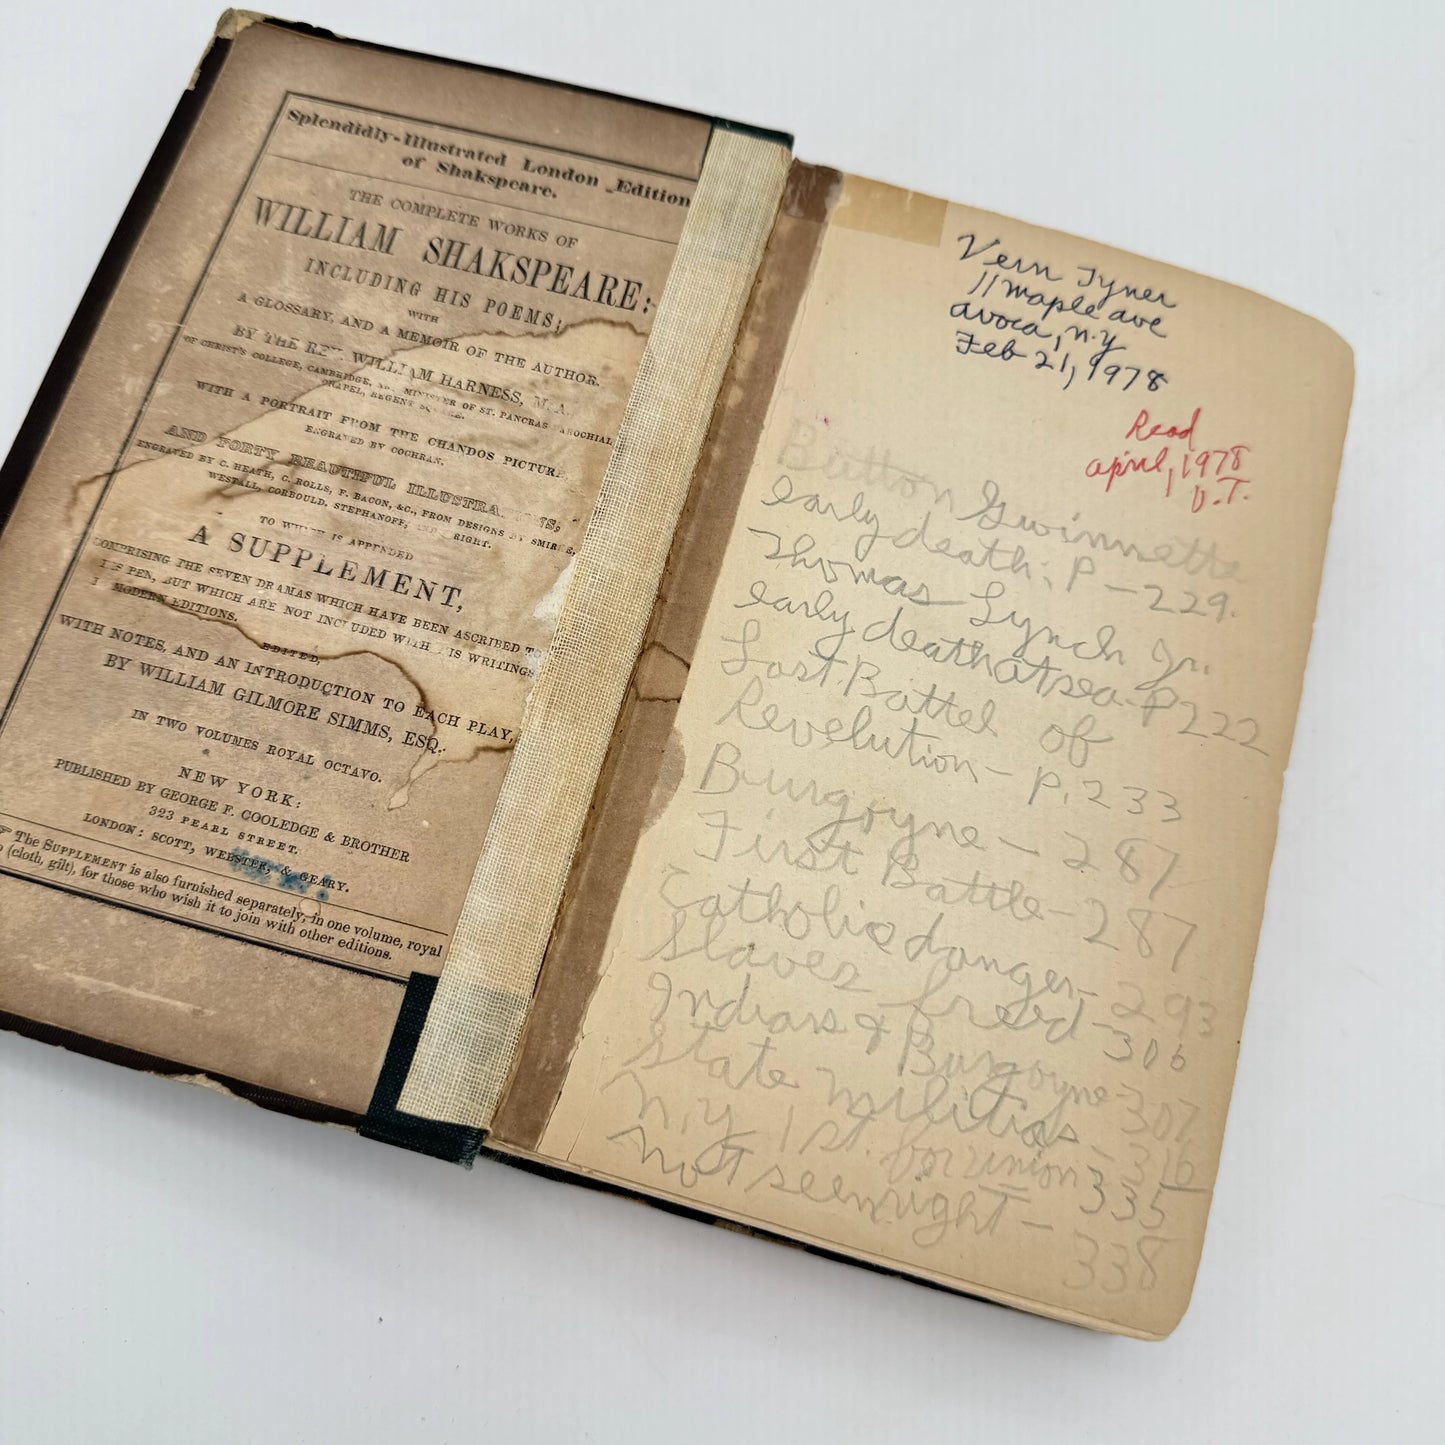 Splendidly-Illustrated London Edition
of Shakspeare.
THE COMPLETE WORKS OF
WILLIAM SHAKSPEARE:
INCLUDING HIS POEMS;
WITH
A GLOSSARY, AND A MEMOIR OF THE AUTHOR.
BY THE REV. WILLIAM HARNESS, M.A.
OF CHRIST'S COLLEGE, CAMBRIDGE, MINISTER OF ST. PANCRAS PAROCHIAL
CHAPEL, REGENT
WITH A PORTRAIT FROM THE CHANDOS PICTURE,
ENGRAVED BY COCHRAN.
AND FORTY BEAUTIFUL ILLUSTRATIONS,
ENGRAVED BY C. HEATH, C. ROLLS, F. BACON, &C., FROM DESIGNS BY SMIRKE,
WESTALL, CORBOULD, STEPHANOFF, AND WRIGHT.
TO WHICH IS APPENDED
A SUPPLEMENT,
COMPRISING THE SEVEN DRAMAS WHICH HAVE BEEN ASCRIBED TO
HIS PEN, BUT WHICH ARE NOT INCLUDED WITH HIS WRITINGS
IN MODERN EDITIONS.
EDITED,
WITH NOTES, AND AN INTRODUCTION TO EACH PLAY,
BY WILLIAM GILMORE SIMMS, ESQ.
IN TWO VOLUMES ROYAL OCTAVO.
NEW YORK:
PUBLISHED BY GEORGE F. COOLEDGE & BROTHER
323 PEARL STREET.
LONDON: SCOTT, WEBSTER, & GEARY.
☞ The SUPPLEMENT is also furnished separately, in one volume, royal
(cloth, gilt), for those who wish it to join with other editions.
Vern Tyner
11 maple ave
avoca, n.y
Feb 21, 1978
Read
april, 1978
V.T.
Button Gwinnette
early death: P-229.
Thomas Lynch Jr.
early death at sea-P222
Last Battel of
Revelution- P. 233
Burgoyne- 287
First Battle- 287
Catholic danger- 293
Slaves freed- 306
Indians & Burgoyne- 307
State militias- 316
N.y 1st. for union- 335
not seen right-
338